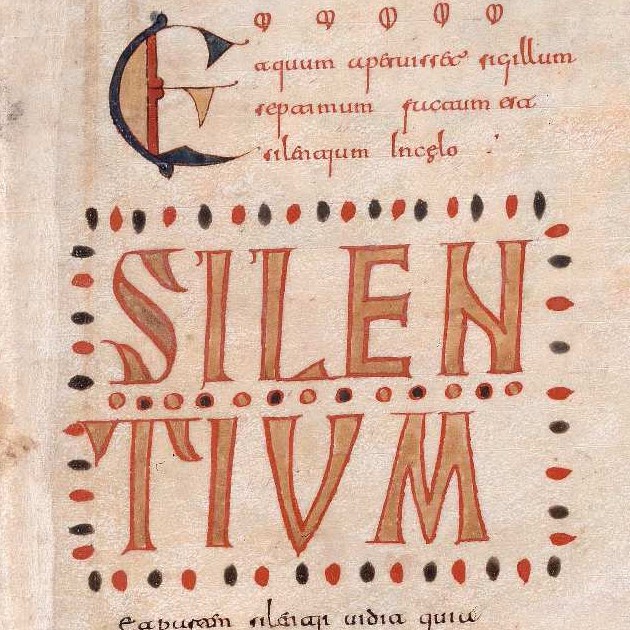 Et quum aperuisset sigillum
septimum factum est
silentium In cęlo
SILEN
TIVM
silentii uidit quia